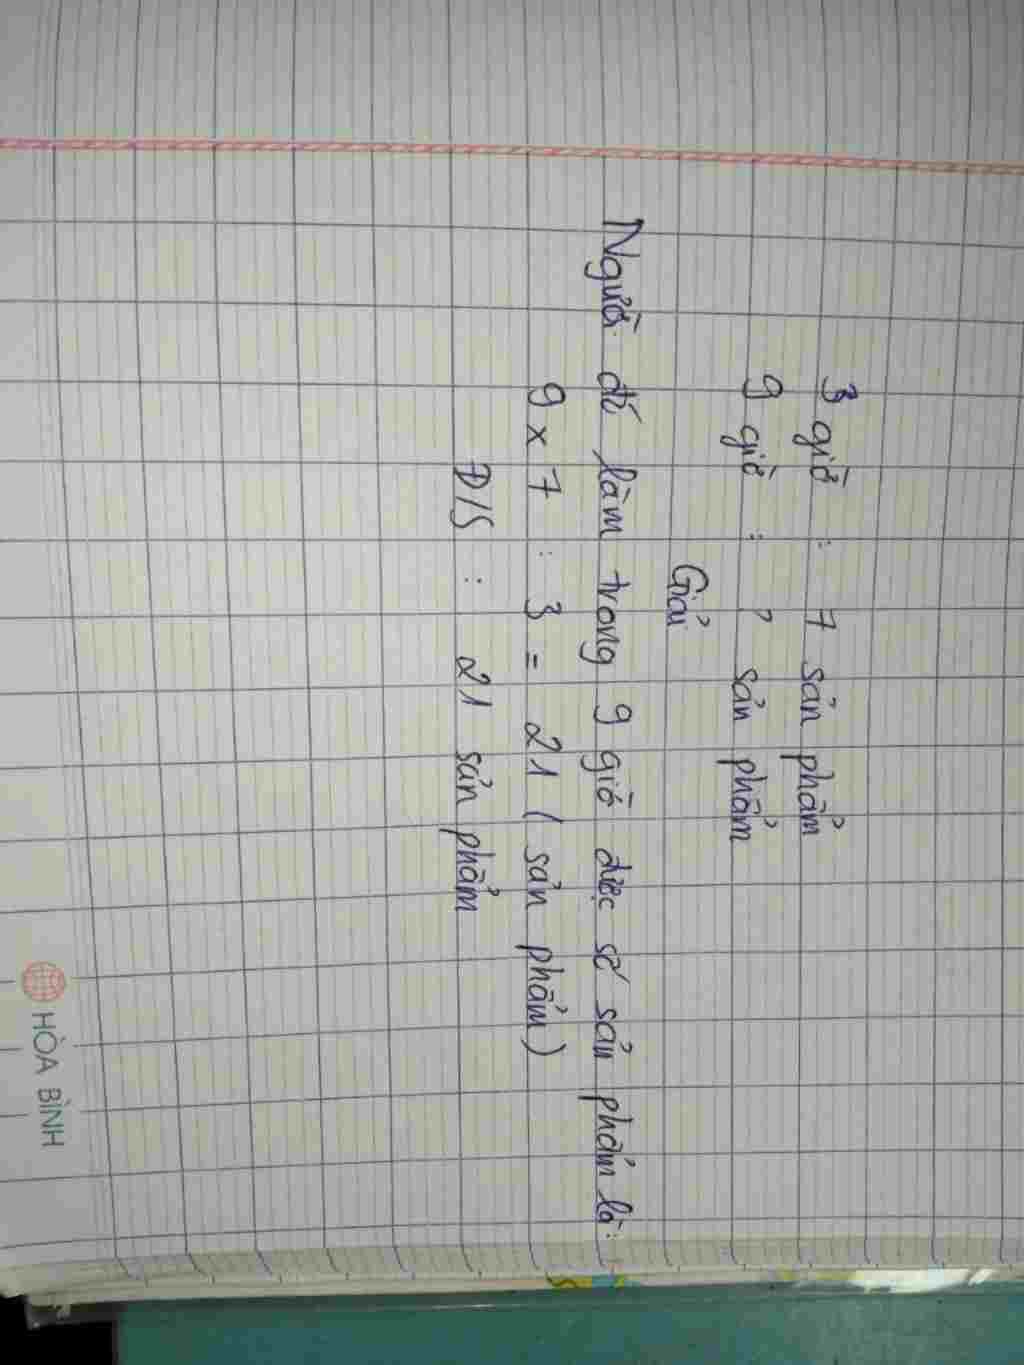 3 giờ : 7 sản phẩm
9 giờ : ? sản phẩm
Giải
Người đó làm trong 9 giờ được số sản phẩm là:
9 x 7 : 3 = 21 ( sản phẩm )
Đ/S : 21 sản phẩm
HÒA BÌNH